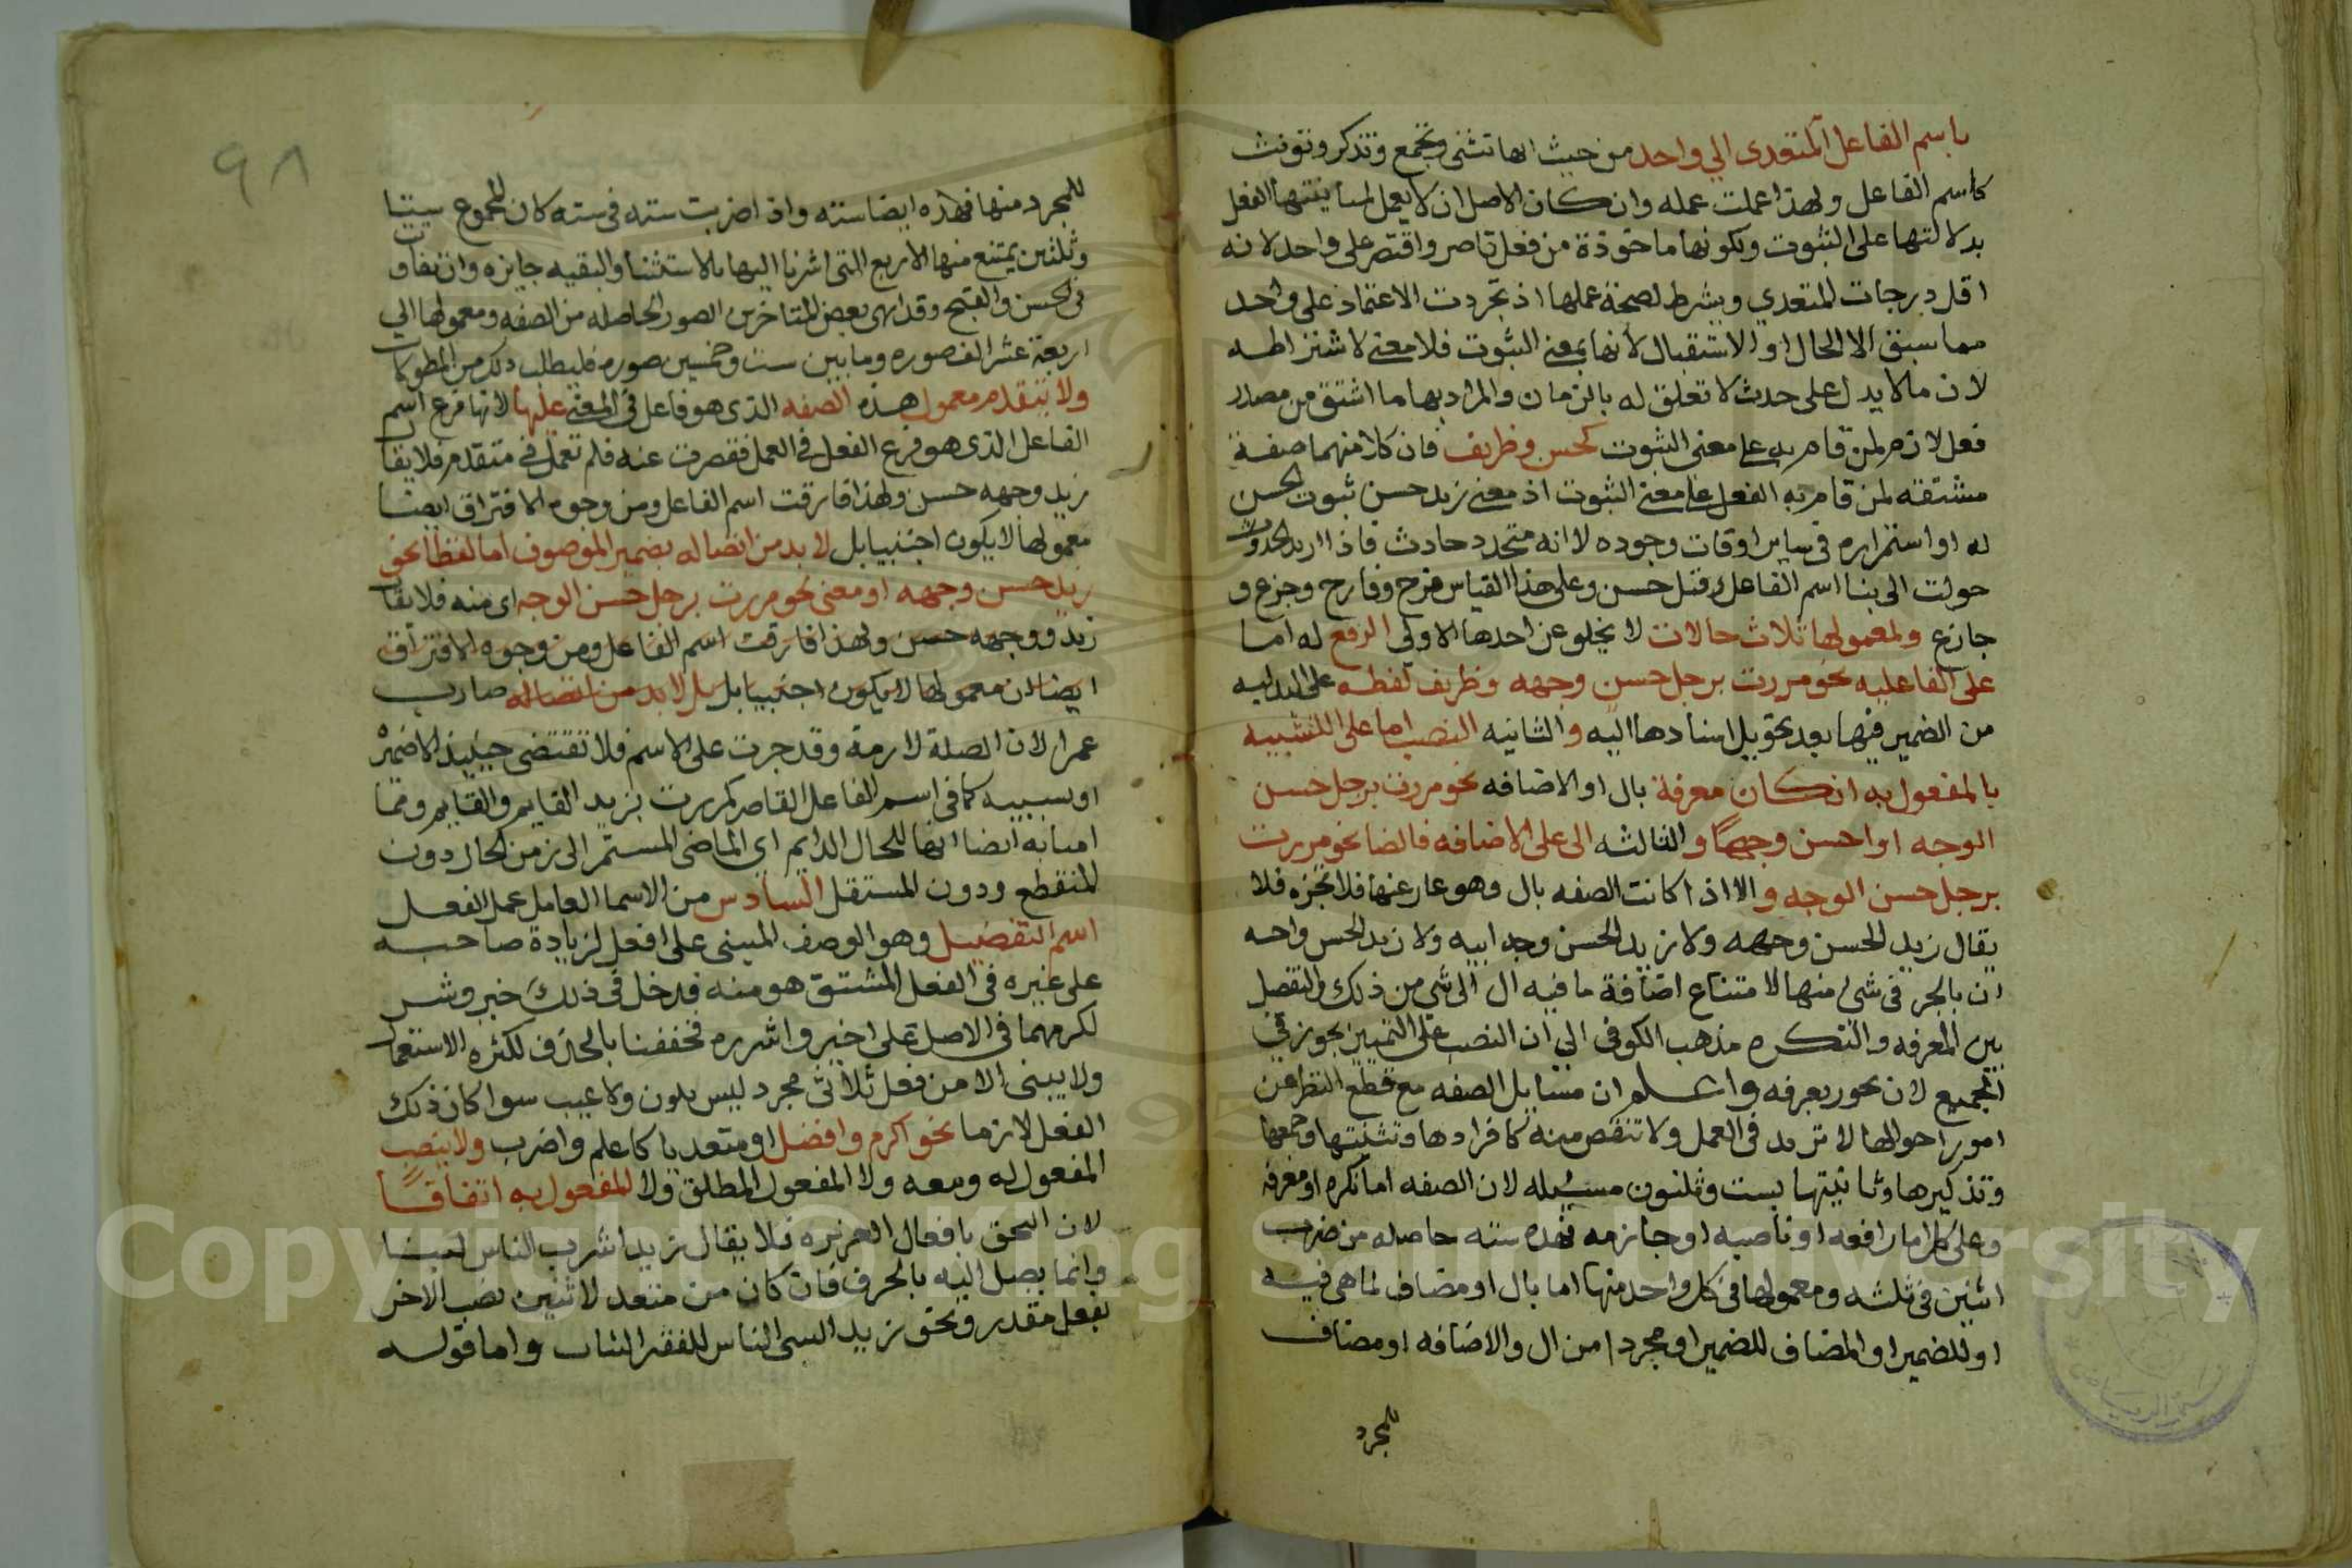 باسم الفاعل المتعدى الي واحد من حيث انها تثنى وتجمع وتذكر وتونث
كاسم الفاعل ولهذا عملت عمله وان كان الاصل ان لا يعمل لمباينتها الفعل
بدلالتها على الثبوت وبكونها ماخوذة من فعل قاصر واقتصر على واحد لانه
اقل درجات المتعدي ويشرط لصحة عملها اذ تجردت الاعتماد على واحد
مما سبق الا الحال او الاستقبال لانها بمعنى الثبوت فلا معنى لاشتراطه
لان مالا يدل على حدث لا تعلق له بالزمان والمراد بها ما اشتق من مصدر
فعل لازم لمن قام به على معنى الثبوت كحسن وظريف فان كلا منهما صفة
مشتقه لمن قام به الفعل على معنى الثبوت اذ معنى زيد حسن ثبوت الحسن
له او استمراره في ساير اوقات وجوده لا انه متجدد حادث فاذا اريد الحدوث
حولت الى بنا اسم الفاعل وقيل حسن وعلى هذا القياس فرح وفارح وجزع و
جازع ولمعمولها ثلاث حالات لا يخلو عن احدها الاولى الرفع له اما
على الفاعليه نحو مررت برجل حسن وجهه وظريف لفظه على البدليه
من الضمير فيها بعد تحويل اسنادها اليه والثانيه النصب اما على التشبيه
بالمفعول به ان كان معرفة بال او الاضافه نحو مررت برجل حسن
الوجه او احسن وجها والثالثه الى على الاضافه فالضا نحو مررت
برجل حسن الوجه والا اذا كانت الصفه بال وهو عار عنها فلا تجزه فلا
يقال زيد الحسن وجهه ولا زيد الحسن وجه ابيه ولا زيد الحسن واحه
ان بالجر في شى منها لامتناع اضافة ما فيه ال الى شي من ذلك والتفصل
بين المعرفه والنكره مذهب الكوفى الى ان النصب على التمييز يجوز في
الجميع لان يجوز بعرفه واعلم ان مسايل الصفه مع قطع النظر عن
امور احوالها لا تزيد في العمل ولا تنقص مينه كافرادها وتثنيتها وجمعها
وتذكيرها وتانيثها بست وثلثون مسيله لان الصفه اما نكره او معرفه
وعلى كل اما رافعه او ناصبه او جازمه فهذه سته حاصله من ضرب
اثنين في ثلثه ومعمولها في كل واحد منها اما بال او مضاف لما هي فيه
او للضمير او المضاف للضمير او مجردا من ال والاضافه او مضاف
للمجرد
٩٨
للمجرد منها فهذه ايضا سته واذا ضربت سته في سته كان المجموع ستا
وثلثين يمتنع منها الاربع التى اشرنا اليها بالاستثنا والبقيه جايزه وان تفاوت
في الحسن والقبح وقد انهى بعض المتاخرين الصور الحاصله من الصفه ومعمولها الي
اربعة عشر الف صوره ومايتين ست وخمسين صوره فليطلب ذلك من المطولات
ولا يتقدم معمول هذه الصفه الذى هو فاعل في المعنى عليها لانها فرع اسم
الفاعل الذى هو فرع الفعل في العمل فقصرت عنه فلم تعمل في متقدم فلا يقال
زيد وجهه حسن ولهذا فارقت اسم الفاعل ومن وجوه الافتراق ايضا
معمولها لا يكون اجنبيا بل لا بد من اتصاله بضمير الموصوف اما لفظا نحو
زيد حسن وجهه او معنى نحو مررت برجل حسن الوجه اى منه فلا يقال
زيد ووجهه حسن ولهذا فارقت اسم الفاعل ومن وجوه الافتراق
ايضا ان معمولها لا يكون اجنبيا بل بل لا بد من اتصاله ضارب
عمرا لان الصلة لازمة وقد جرت على الاسم فلا تقتضى حينيذ الا ضميره
او سببيه كما في اسم الفاعل القاصر كمررت بزيد القايم والقايم ومما
امتنابه ايضا انها للحال الدايم اي الماضي المستمر الى زمن الحال دون
المنقطع ودون المستقل السادس من الاسما العامل عمل الفعل
اسم التفضيل وهو الوصف المبنى على افعل لزيادة صاحبه
على غيره في الفعل المشتق هو منه فدخل في ذلك خير وشر
لكرمهما في الاصل على اخير واشرره فخففنا بالحذف لكثره الاستعمال
ولا يبنى الا من فعل ثلاثى مجرد ليس بلون ولا عيب سوا كان ذلك
الفعل لازما نحو اكرم وافضل او متعديا كاعلم واضرب ولا ينصب
المفعول له ومعه ولا المفعول المطلق ولا المفعول به اتفاقا
لان الحق بافعال الغريزه فلا يقال زيد اشرب الناس لبنا
وانما يصل اليه بالحرف فان كان من متعد لاثنين نصب الاخر
بفعل مقدر ونحو زيد اكسى الناس للفقرا الثياب واما قوله